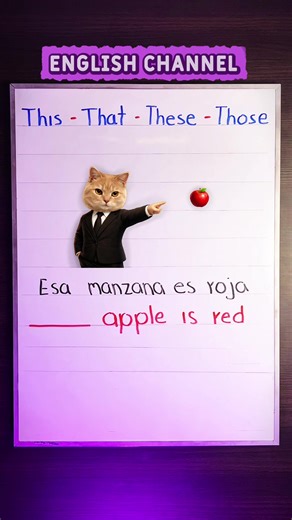 ENGLISH CHANNEL
This - That - These - Those
Esa manzana es roja
____ apple is red